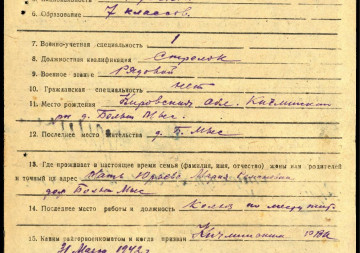 6. Образование 7 классов.
7. Военно-учетная специальность 1
8. Должностная квалификация Стрелок
9. Военное звание Рядовой
10. Гражданская специальность нет
11. Место рождения Кировская обл.
д. Больш. Мыс.
12. Последнее место жительства д. Б. Мыс
13. Где проживает в настоящее время семья (фамилия, имя, отчество) жены или родителей
и точный их адрес Мать Мария
дер Больш Мыс
14. Последнее место работы и должность Колхоз
15. Каким райгорвоенкоматом и когда призван РВК
31 1942 г.